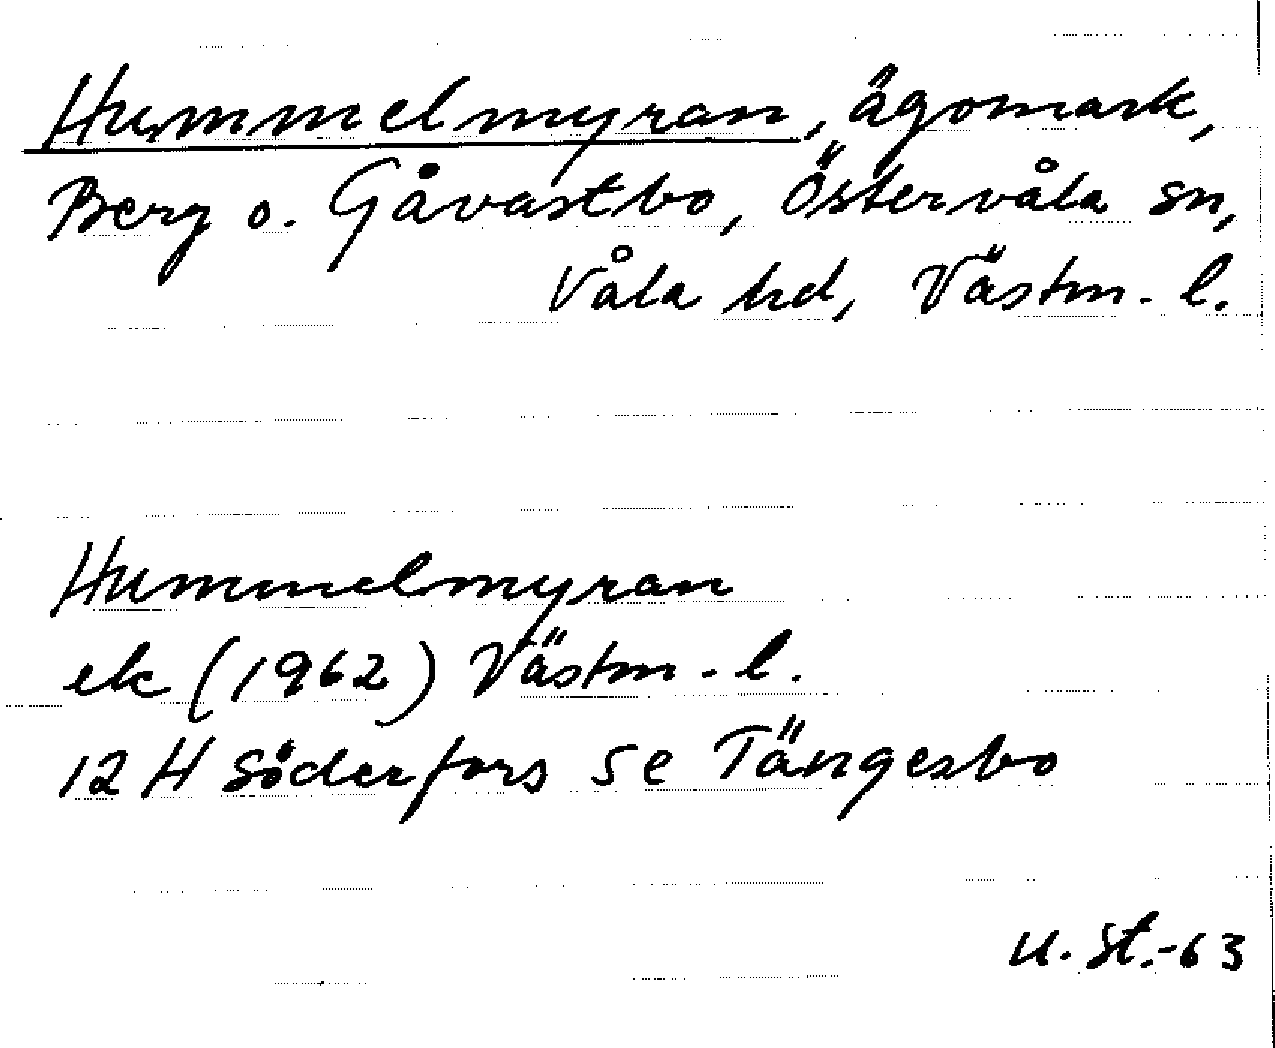 Hummelmyran, ägomark,
Berg o. Gåvastbo, Östervåla sn,
Våla hd, Västm. l.
Hummelmyran
ek (1962) Västm. l.
12 H Söderfors 5 e Tängesbo
U. St.-63